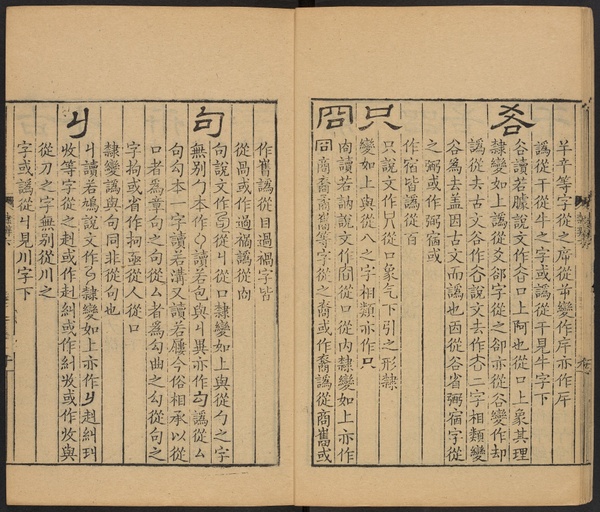 羊辛等字從之㡿從𢆉變作斥亦作斥
譌從干從牛之字或譌從干見牛字下
谷
谷讀若臄說文作𧮫口上阿也從口上象其理
隸變如上譌從爻郤字從之卻亦從谷變作却
譌從去古文谷作𧮫說文去作𠫓二字相類變
谷為去蓋因古文而譌也㐁從谷省弼宿字從
之弼或作弼宿或
作宿皆譌從百
只
只說文作只從口象气下引之形隸
變如上與從八之字相類亦作只
㕯
㕯讀若訥說文作㕯從口從內隸變如上亦作
冏商裔矞巂等字從之裔或作裔譌從商巂或
作舊譌從目過禍字皆
從咼或作過禍譌從㕯
句
句說文作句從丩從口隸變如上與從勹之字
無別勹本作勹讀若包與丩異亦作勾譌從厶
句勾本一字讀若溝又讀若屨今俗相承以從
口者為章句之句從厶者為勾曲之勾從句之
字拘或省作抅亟從人從口
隸變譌與句同非從句也
丩
丩讀若鳩說文作丩隸變如上亦作丩赳糾㺩
收等字從之赳或作赳糾或作糾收或作收與
從刀之字無別從川之
字或譌從丩見川字下